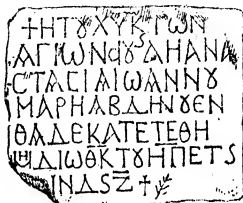 ✝ΗΤΟΥΧΥΚΓΩΝ
ΑΓΙΩΝΔΟΥΛΗΑΝΑ
CΤΑCΙΑΙΩΑΝΝΟΥ
ΜΑΡΗΑΒΔΗΝΟΥΕΝ
ΘΑΔΕΚΑΤΕΤΕΘΗ
ΜΔΙΩΘΚΤΟΥΗΠΕΤS
ΙΝΔSΖ✝